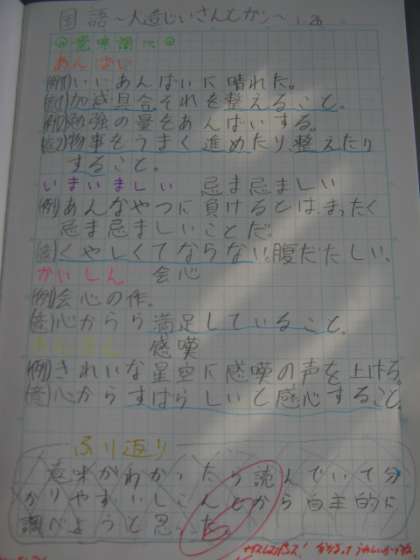 国語 〜大造じいさんとガン〜
意味調べ
あんばい
(例)いいあんばいに晴れた。
(意)加減具合それを整えること。
(例)勉強の量をあんばいする。
(意)物事をうまく進めたり、整えたり
すること。
いまいましい 忌ま忌ましい
(例)あんなやつに負けるとは、まったく
忌ま忌ましいことだ。
(意)くやしくてならない。腹だたしい。
かいしん 会心
(例)会心の作。
(意)心からり満足していること。
かんたん 感嘆
(例)きれいな星空に感嘆の声を上げる。
(意)心からすばらしいと感心すること。
ふり返り
意味がわかったら読んでいて分
かりやすいしこれから自主的に
調べようと思った。